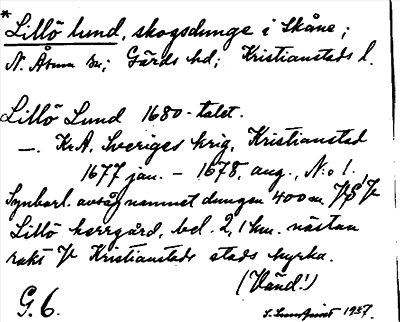 * Lillö lund, skogsdunge i Skåne;
N. Åsum sn; Gärds hd; Kristianstads l.
Lillö Lund 1680-talet.
—. Kr.A, Sveriges krig, Kristianstad
1677 jan. – 1678, aug., N:o 1.
Synbarl. avsåg namnet dungen 400 m.
Lillö herrgård, bel. 2,1 km. nästan
rakt V Kristianstads stads kyrka.
(Vänd!)
G. 6. 1937.